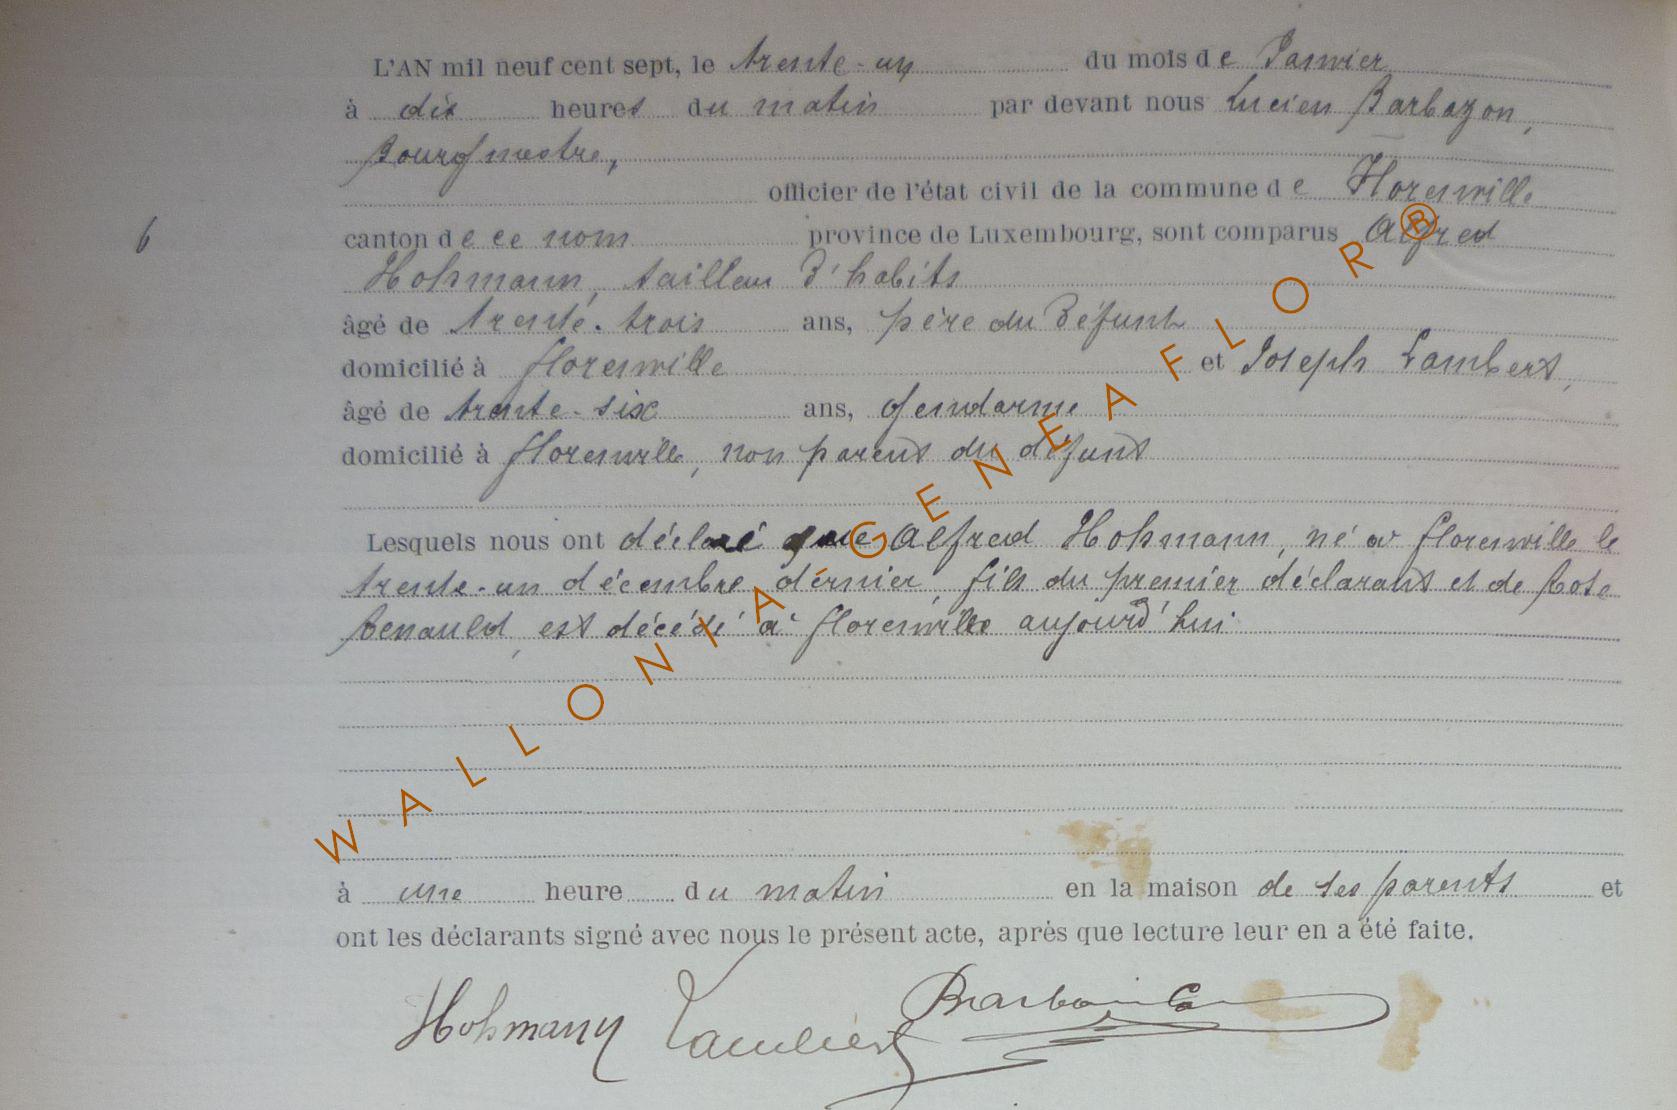 L'AN mil neuf cent sept, le trente-un du mois de Janvier
à dix heures du matin par devant nous Lucien Barbazon,
Bourgmestre,
officier de l'état civil de la commune de Florenville
6 canton de ce nom province de Luxembourg, sont comparus Alfred
Hohmann, tailleur d'habits
âgé de trente-trois ans, père du défunt
domicilié à Florenville et Joseph Lambert,
âgé de trente-six ans, gendarme
domicilié à Florenville, non parent du défunt
Lesquels nous ont déclaré que Alfred Hohmann, né à Florenville le
trente-un décembre dernier, fils du premier déclarant et de Rose
Renauld, est décédé à Florenville aujourd'hui
à une heure du matin en la maison de ses parents et
ont les déclarants signé avec nous le présent acte, après que lecture leur en a été faite.
Hohmann Lambert Barbazon
WALLONIA GENEAFLOR ®